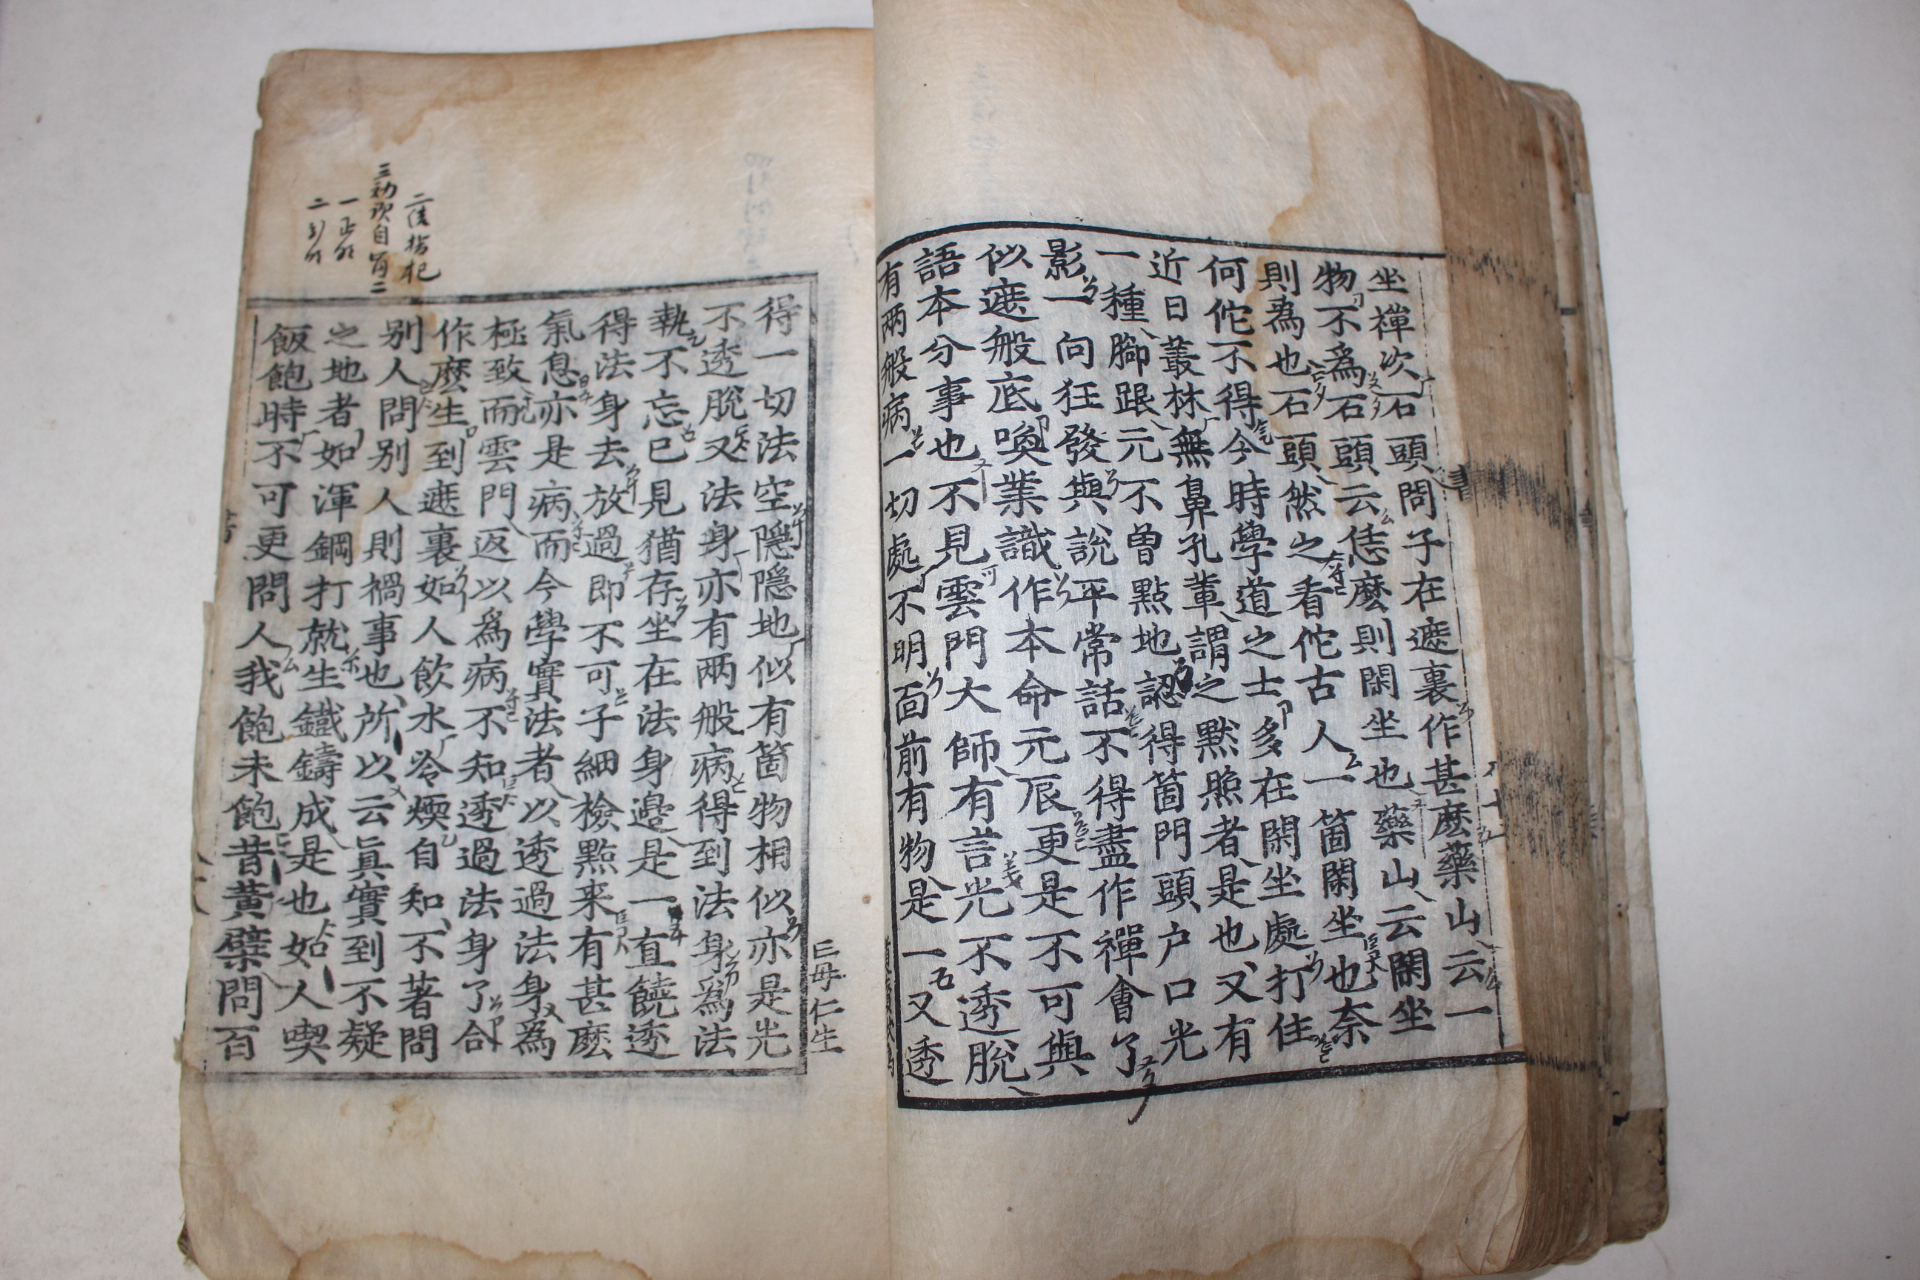 坐禪次石頭問子在遮裏作甚麽藥山云一
物不爲石頭云恁麽則閑坐也藥山云閑坐
則爲也石頭然之看佗古人一箇閑坐也奈
何佗不得今時學道之士多在閑坐處打住
近日叢林無鼻孔輩謂之黙照者是也又有
一種脚跟元不曾點地認得箇門頭户口光
影一向狂發與說平常話不得盡作禪會了
似遮般底喚業識作本命元辰更是不可與
語本分事也不見雲門大師有言光不透脫
有兩般病一切處不明面前有物是一又透
得一切法空隱隱地似有箇物相似亦是光
不透脫又法身亦有兩般病得到法身爲法
執不忘已見猶存坐在法身邊是一直饒透
得法身去放過即不可子細檢點来有甚麽
氣息亦是病而今學實法者以透過法身爲
極致而雲門返以爲病不知透過法身了合
作麽生到遮裏如人飮水冷煖自知不著問
别人問别人則禍事也所以云眞實到不疑
之地者如渾鋼打就生鐵鑄成是也如人喫
飯飽時不可更問人我飽未飽昔黃檗問百
巨母仁生